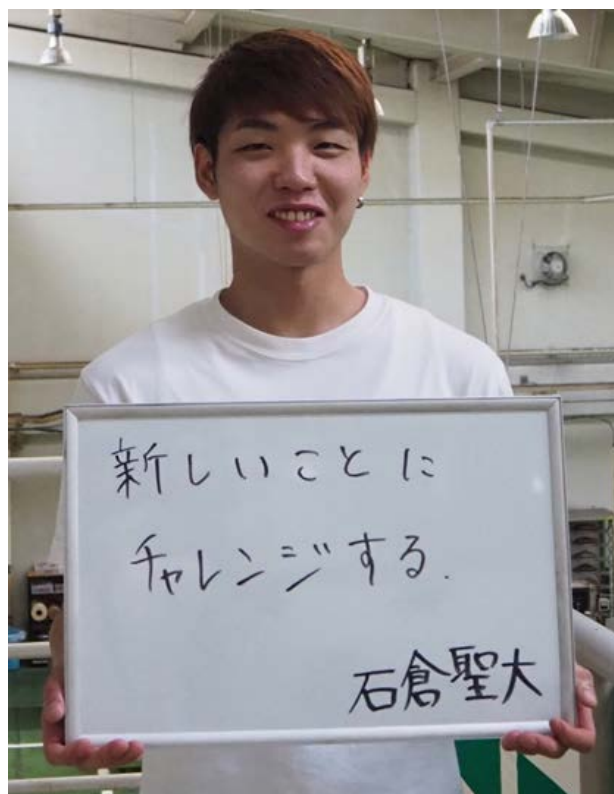 新しいことに
チャレンジする.
石倉聖大